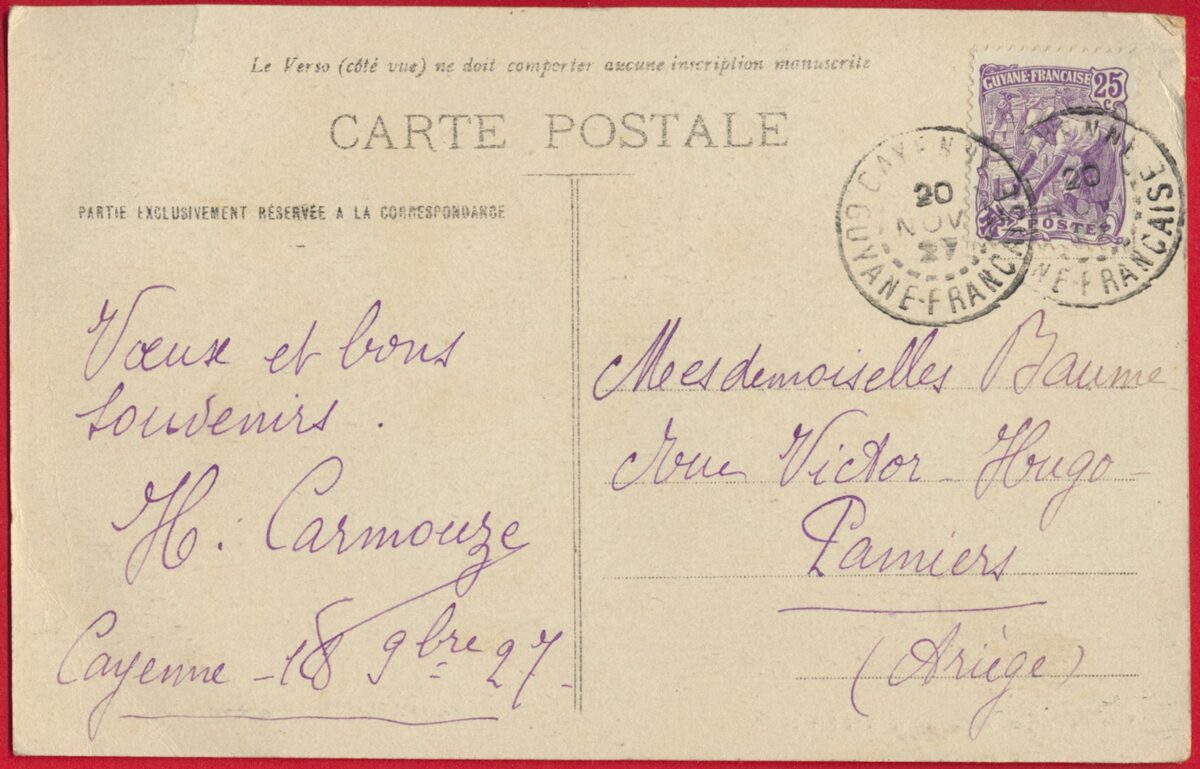 Le Verso (côté vue) ne doit comporter aucune inscription manuscrite
CARTE POSTALE
PARTIE EXCLUSIVEMENT RÉSERVÉE A LA CORRESPONDANCE
GUYANE-FRANÇAISE 25 c.
POSTES
CAYENNE
20
NOV
27
GUYANE-FRANÇAISE
20
NE-FRANÇAISE
Vœux et bons
souvenirs.
H. Carmouze
Cayenne - 18 9bre 27 -
Mesdemoiselles Baume
Rue Victor-Hugo -
Pamiers
(Ariège)